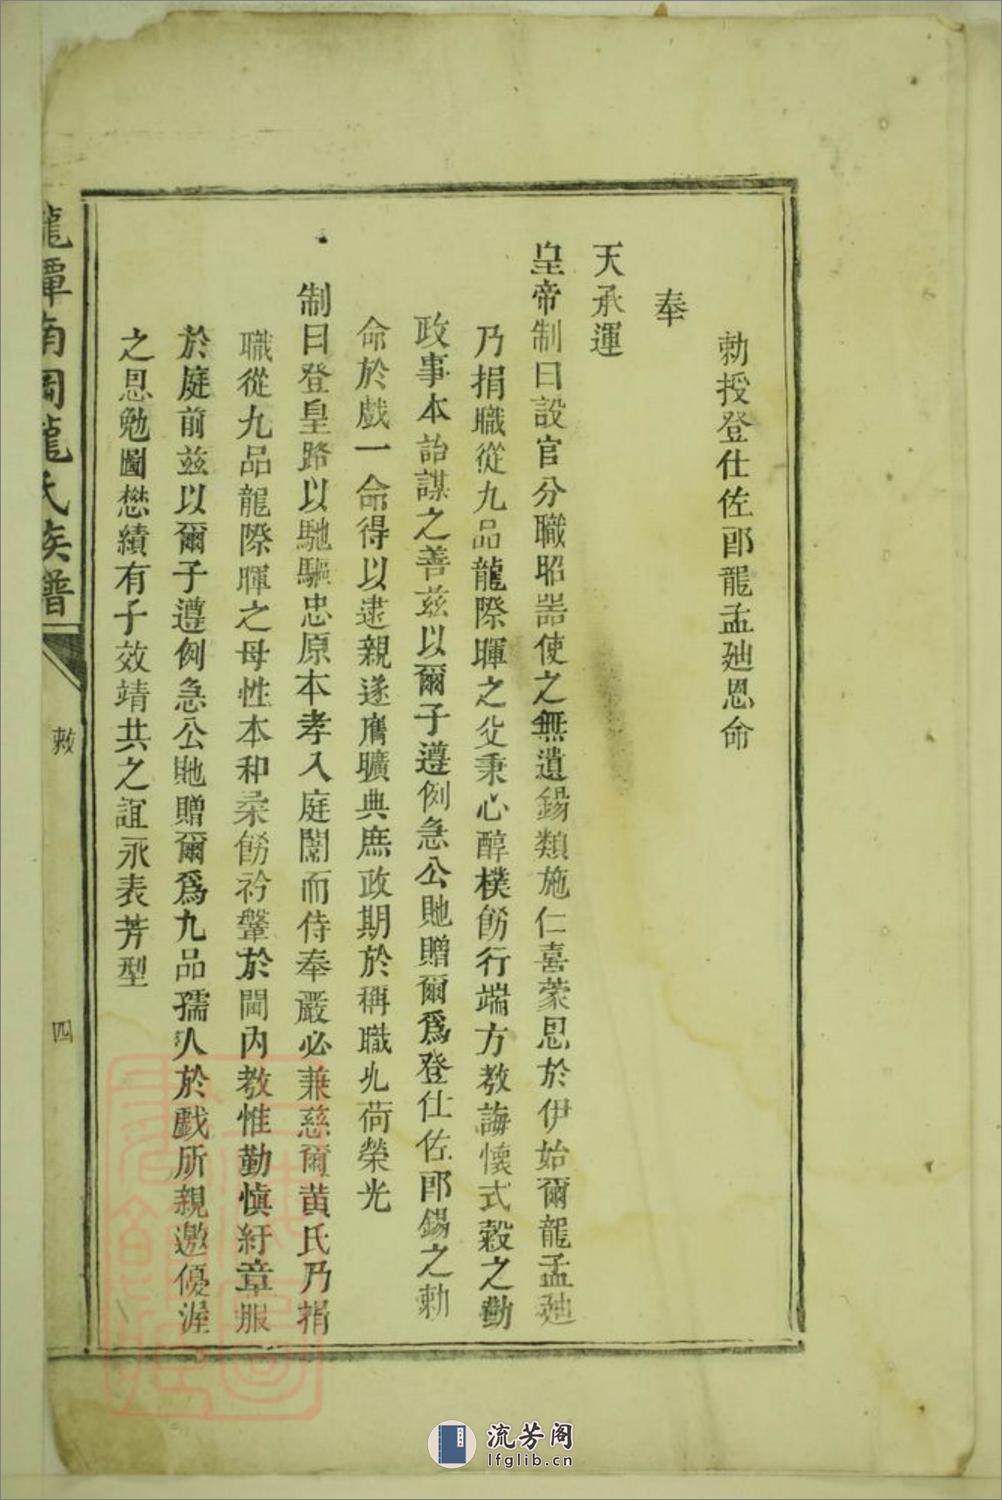 勅授登仕佐郎龍孟廸恩命
奉
天承運
皇帝制曰設官分職昭器使之無遺錫類施仁喜蒙恩於伊始爾龍孟廸
乃捐職從九品龍際暉之父秉心醇樸飭行端方教誨懷式穀之勤
政事本詒謀之善兹以爾子遵例急公貤贈爾爲登仕佐郎錫之勅
命於戲一命得以逮親遂膺曠典庶政期於稱職允荷榮光
制曰登皇路以馳驅忠原本孝入庭闈而侍奉嚴必兼慈爾黄氏乃捐
職從九品龍際暉之母性本和柔飭衿鞶於閫内教惟勤慎紆章服
於庭前兹以爾子遵例急公貤贈爾爲九品孺人於戲所親邀優渥
之恩勉圖懋績有子效靖共之誼永表芳型
龍潭南岡龍氏族譜
敕
四
流芳阁
lfglib.cn